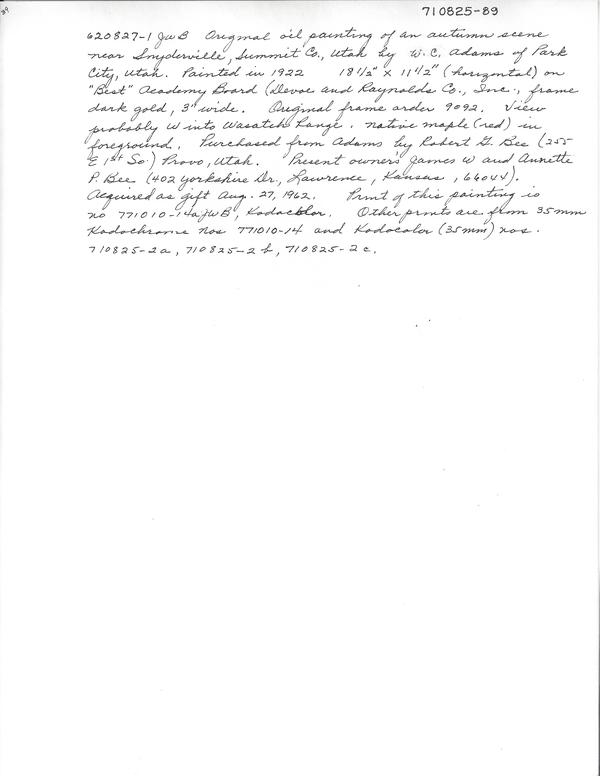 89
710825-89
620827-1 JWB Original oil painting of an autumn scene
near Snyderville, Summit Co., Utah by W.C. Adams of Park
City, Utah. Painted in 1922 18 1/2" x 11 1/2" (horizontal) on
"Best" Academy Board (Devoe and Raynolds Co., Inc., frame
dark gold, 3" wide. Original frame order 9092. View
probably W into Wasatch Range. Native maple (red) in
foreground. Purchased from Adams by Robert G. Bee (255
E 1st So.) Provo, Utah. Present owners James W and Annette
P. Bee (402 Yorkshire Dr., Lawrence, Kansas, 66044).
Acquired as gift Aug. 27, 1962. Print of this painting is
no 771010-14a JWB, Kodacolor. Other prints are from 35mm
Kodachrome nos 771010-14 and Kodacolor (35mm) nos.
710825-2a, 710825-2b, 710825-2c.